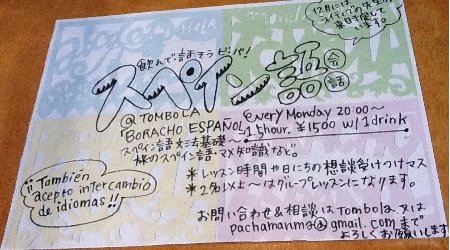 12月には
ネイティブの先生が
来日予定して
います。
飲んで話そうビバ!
スペイン語会話
@TOMBOLA
"BORACHO ESPAÑOL"
every Monday 20:00~
1.5hour. ¥1500 w/1drink
スペイン語文法基礎~
旅のスペイン語・マメ知識など。
*レッスン時間や日にちの想談受けつけマス
*2名以上~はグループレッスンになります。
¡¡También
acepto intercambio
de idiomas!!
お問い合わせ&相談はTombola又は
@gmail.comまで
よろしくお願いします